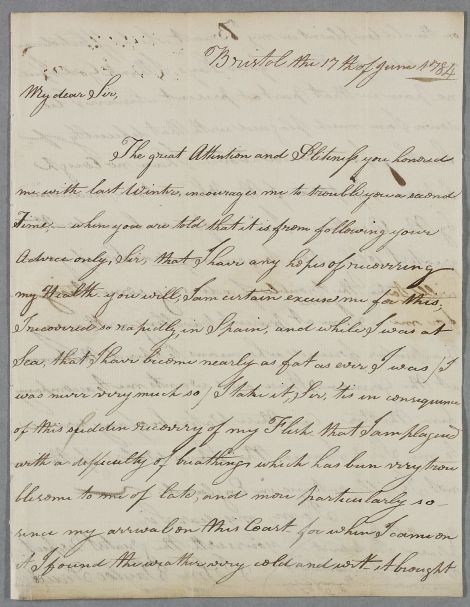 Bristol the 17th of June 1784
My dear Sir,
The great Attention and Politeness you honored
me with last Winter, incourages me to trouble you a second
Time; — when you are told that it is from following your
Advice only, Sir, that I have any hopes of recovering
my Health you will, I am certain excuse me for this,
I recovered so rapidly, in Spain, and while I was at
Sea, that I have become nearly as fat as ever I was / I
was never very much so / I take it, Sir, 'tis in consequence
of this sudden recovery of my Flesh that I am plagued
with a difficulty of breathing which has been very trou
blesome to me of late, and more particularly so
since my arrival on this Coast for when I came on
it I found the weather very cold and wet. it brought